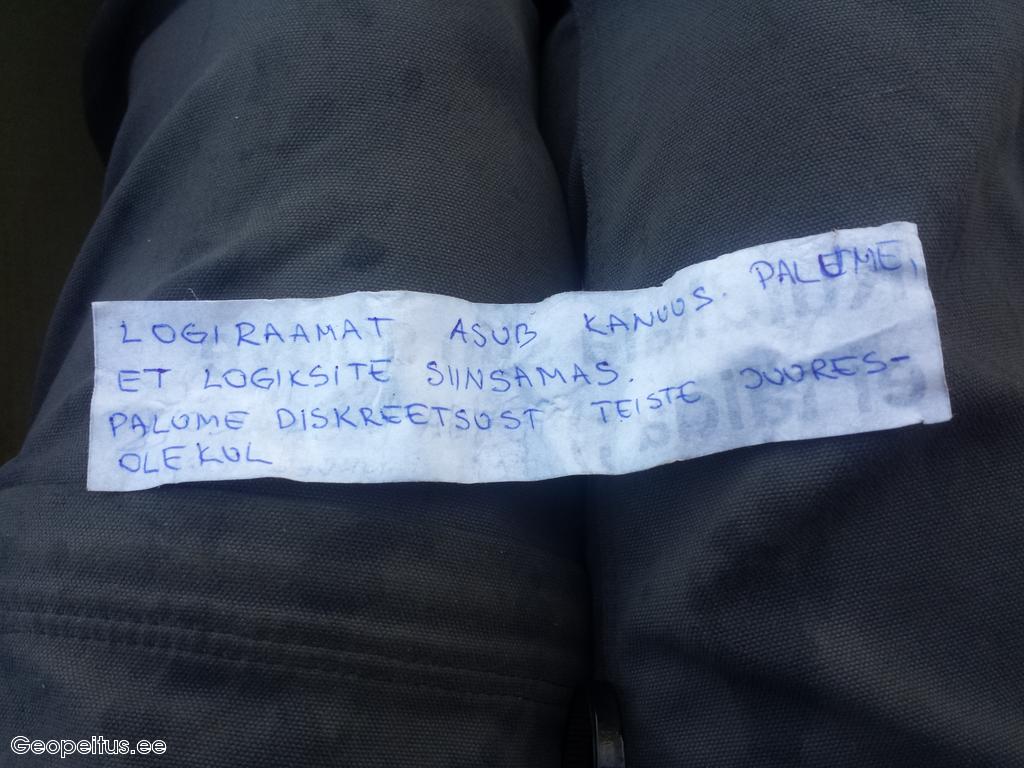 LOGIRAAMAT ASUB KANUUS. PALUME,
ET LOGIKSITE SIINSAMAS.
PALUME DISKREETSUST TEISTE JUURES-
OLEKUL
Geopeitus.ee